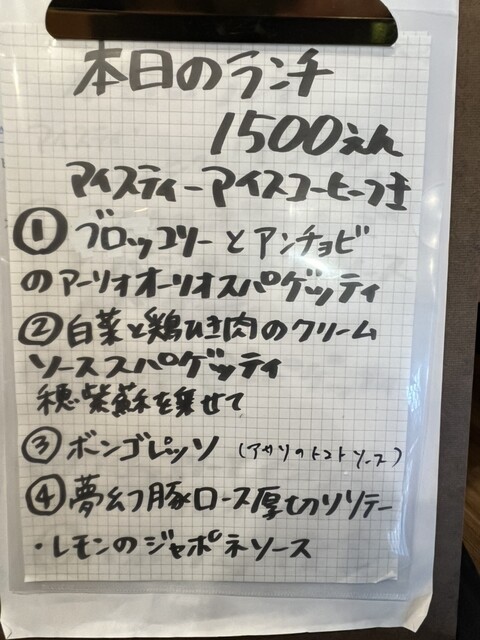 本日のランチ
1500えん
アイスティーアイスコーヒーつき
① ブロッコリーとアンチョビ
のアーリオオーリオスパゲッティ
② 白菜と鶏ひき肉のクリーム
ソーススパゲッティ
穂紫蘇を乗せて
③ ボンゴレッソ (アサリのトマトソース)
④ 夢幻豚ロース厚切ソテー
・レモンのジャポネソース